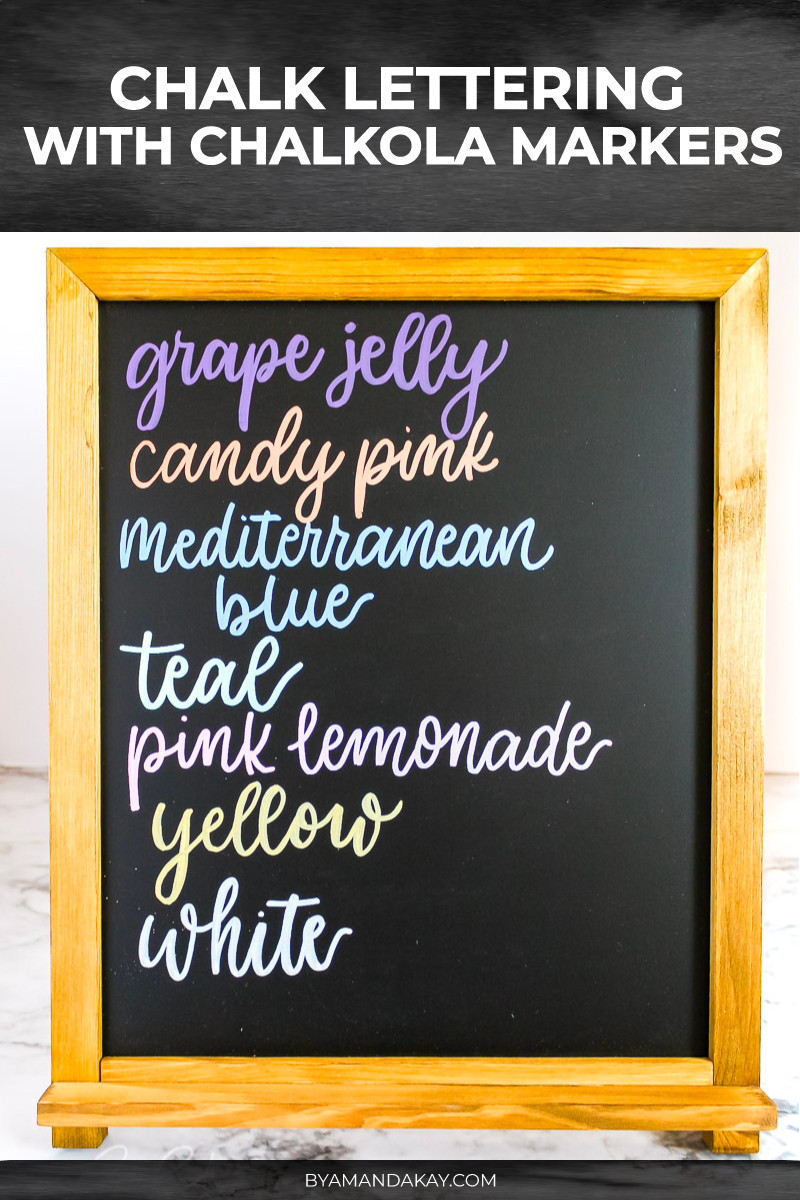 CHALK LETTERING
WITH CHALKOLA MARKERS
grape jelly
candy pink
mediterranean
blue
teal
pink lemonade
yellow
white
BYAMANDAKAY.COM